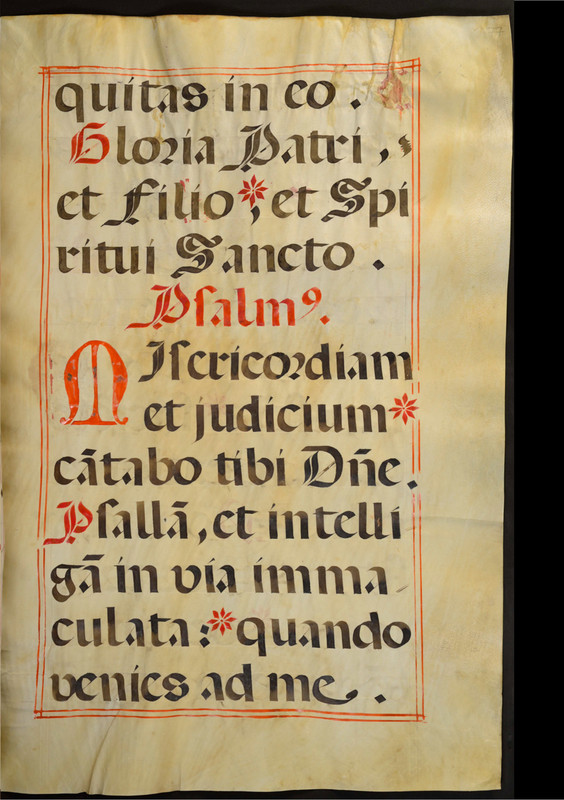 quitas in eo.
Gloria Patri,
et Filio * , et Spi
ritui Sancto.
Psalm⁹.
Misericordiam
et judicium *
cãtabo tibi Dñe.
Psallã, et intelli
gã in via imma
culata: * quando
venies ad me.